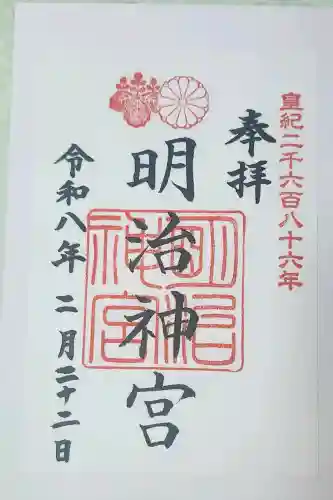 皇紀二千六百八十六年
奉拝
明治神宮
令和八年二月二十二日
明治神宮